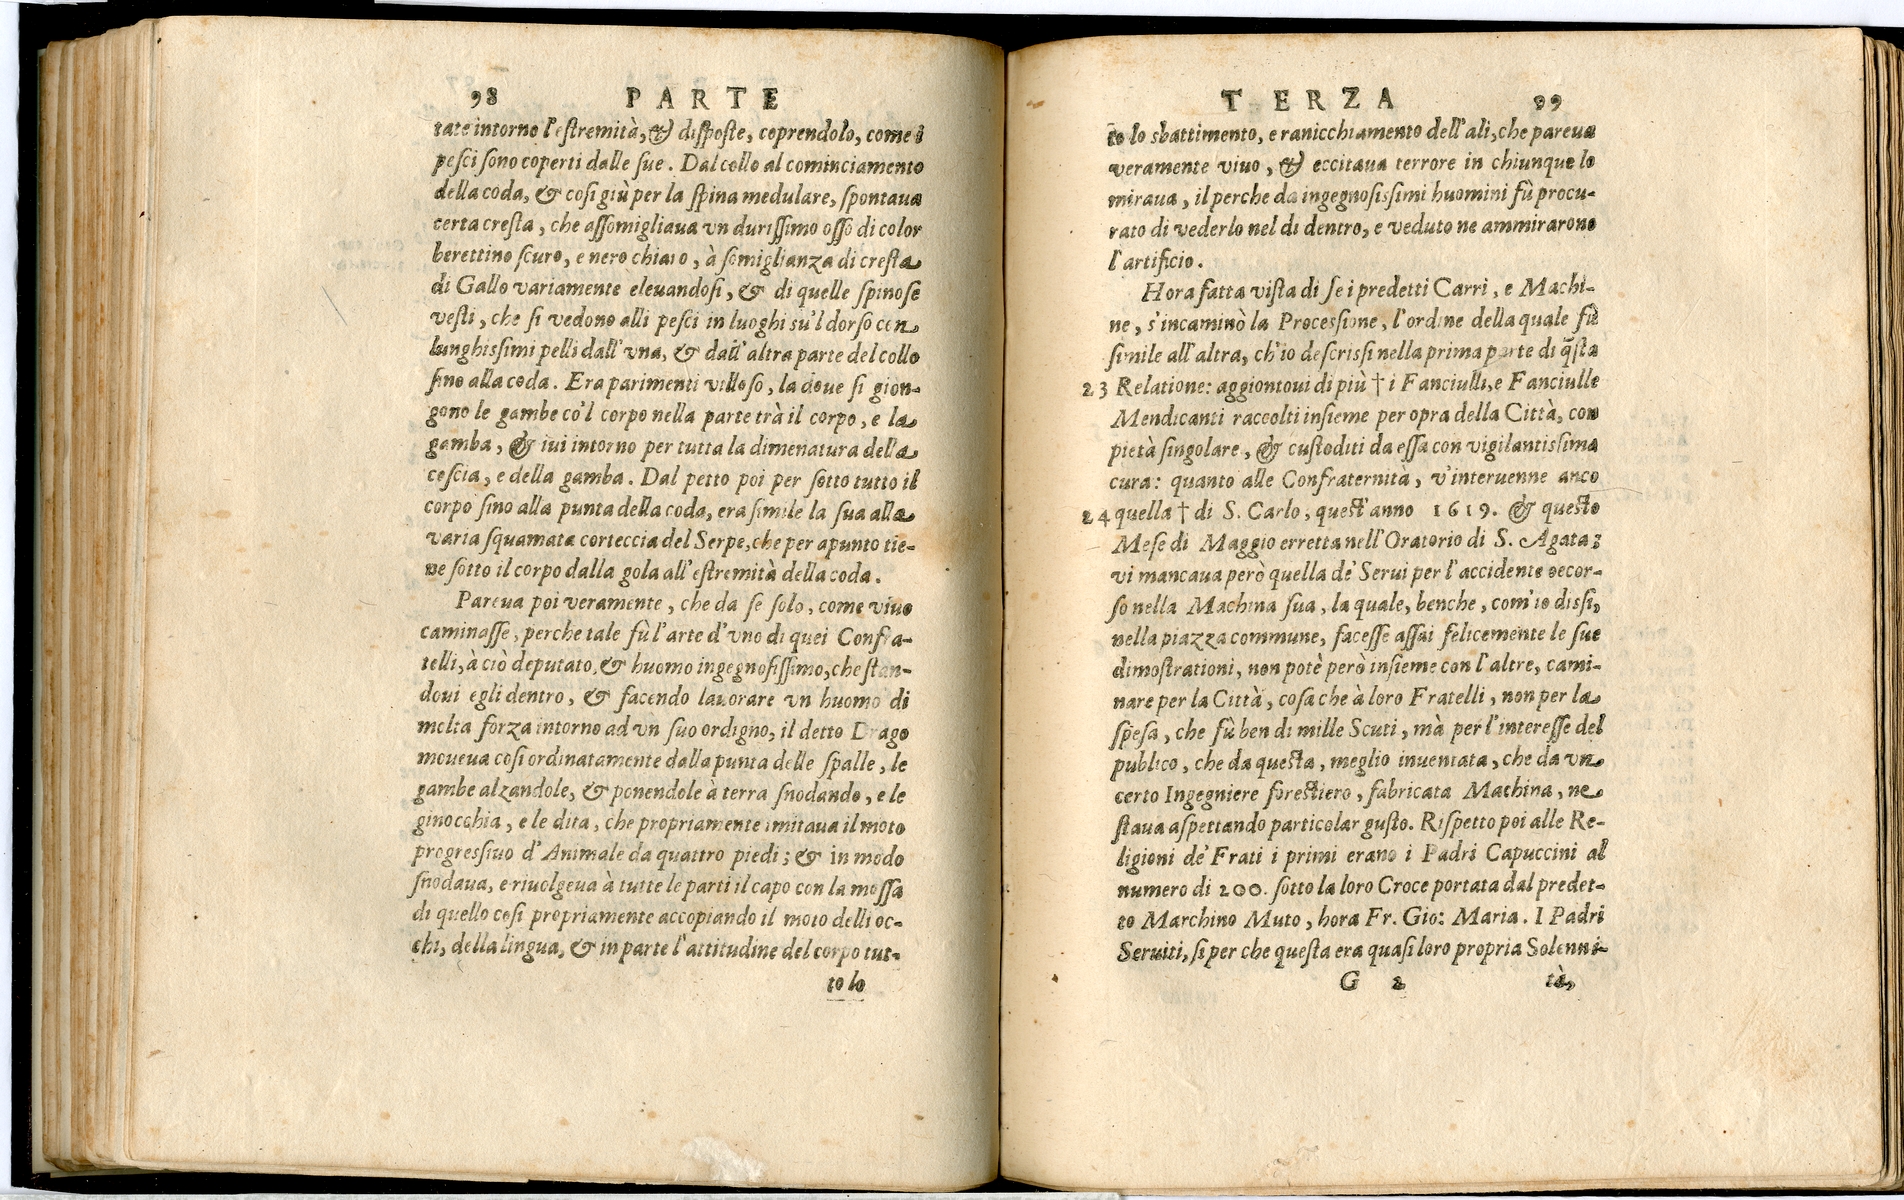 98 PARTE
tate intorno l'estremità, & disposte, coprendolo, come i
pesci sono coperti dalle sue. Dal collo al cominciamento
della coda, & cosi giù per la spina medulare, spontaua
certa cresta, che assomigliaua vn durissimo osso di color
berettino scuro, e nero chiaro, à somiglianza di cresta
di Gallo variamente eleuandosi, & di quelle spinose
vesti, che si vedono alli pesci in luoghi su'l dorso con
lunghissimi pelli dall'vna, & dall'altra parte del collo
fino alla coda. Era parimenti villoso, la doue si gion-
gono le gambe co'l corpo nella parte trà il corpo, e la
gamba, & iui intorno per tutta la dimenatura della
coscia, e della gamba. Dal petto poi per sotto tutto il
corpo sino alla punta della coda, era simile la sua alla
varia squamata corteccia del Serpe, che per apunto tie-
ne sotto il corpo dalla gola all'estremità della coda.
Pareua poi veramente, che da se solo, come viuo
caminasse, perche tale fù l'arte d'vno di quei Confra-
telli, à ciò deputato, & huomo ingegnosissimo, che stan-
doui egli dentro, & facendo lauorare vn huomo di
molta forza intorno ad vn suo ordigno, il detto Drago
moueua cosi ordinatamente dalla punta delle spalle, le
gambe alzandole, & ponendole à terra snodando, e le
ginocchia, e le dita, che propriamente imitaua il moto
progressiuo d'Animale da quattro piedi; & in modo
snodaua, e riuolgeua à tutte le parti il capo con la mossa
di quello cosi propriamente accopiando il moto delli oc-
chi, della lingua, & in parte l'attitudine del corpo tut-
to lo
TERZA 99
to lo sbattimento, e ranicchiamento dell'ali, che pareua
veramente viuo, & eccitaua terrore in chiunque lo
miraua, il perche da ingegnosissimi huomini fù procu-
rato di vederlo nel di dentro, e veduto ne ammirarono
l'artificio.
Hora fatta vista di se i predetti Carri, e Machi-
ne, s'incaminò la Processione, l'ordine della quale fù
simile all'altra, ch'io descrissi nella prima parte di q̃sta
23 Relatione: aggiontoui di più † i Fanciulli, e Fanciulle
Mendicanti raccolti insieme per opra della Città, con
pietà singolare, & custoditi da essa con vigilantissima
cura: quanto alle Confraternità, v'interuenne anco
24 quella † di S. Carlo, quest'anno 1619. & questo
Mese di Maggio erretta nell'Oratorio di S. Agata;
vi mancaua però quella de' Serui per l'accidente occor-
so nella Machina sua, la quale, benche, com'io dissi,
nella piazza commune, facesse assai felicemente le sue
dimostrationi, non potè però insieme con l'altre, cami-
nare per la Città, cosa che à loro Fratelli, non per la
spesa, che fù ben di mille Scuti, mà per l'interesse del
publico, che da questa, meglio inuentata, che da vn
certo Ingegniere forestiero, fabricata Machina, ne
staua aspettando particolar gusto. Rispetto poi alle Re-
ligioni de' Frati i primi erano i Padri Capuccini al
numero di 200. sotto la loro Croce portata dal predet-
to Marchino Muto, hora Fr. Gio: Maria. I Padri
Seruiti, si per che questa era quasi loro propria Solenni-
G 2 tà,